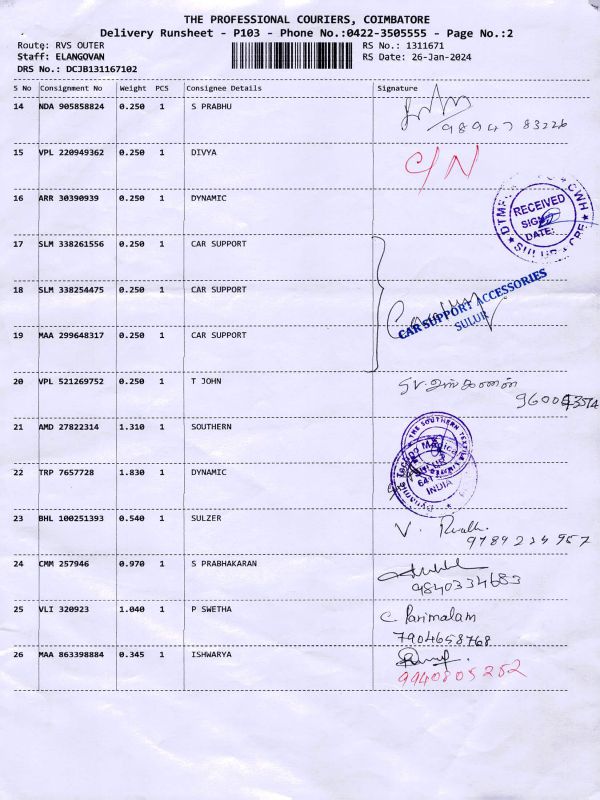 THE PROFESSIONAL COURIERS, COIMBATORE
Delivery Runsheet - P103 - Phone No.:0422-3505555 - Page No.:2
Route: RVS OUTER RS No.: 1311671
Staff: ELANGOVAN RS Date: 26-Jan-2024
DRS No.: DCJB131167102
S No Consignment No Weight PCS Consignee Details Signature
14 NDA 905858824 0.250 1 S PRABHU
98947 83226
15 VPL 220949362 0.250 1 DIVYA C/N
16 ARR 30390939 0.250 1 DYNAMIC
RECEIVED
SIGN
DATE:
SULUR
17 SLM 338261556 0.250 1 CAR SUPPORT
18 SLM 338254475 0.250 1 CAR SUPPORT
CAR SUPPORT ACCESSORIES
SULUR
19 MAA 299648317 0.250 1 CAR SUPPORT
20 VPL 521269752 0.250 1 T JOHN
21 AMD 27822314 1.310 1 SOUTHERN
THE SOUTHERN
22 TRP 7657728 1.830 1 DYNAMIC
INDIA
23 BHL 100251393 0.540 1 SULZER
9789234957
24 CMM 257946 0.970 1 S PRABHAKARAN
9840334683
25 VLI 320923 1.040 1 P SWETHA C Parimalam
7904658768
26 MAA 863398884 0.345 1 ISHWARYA
9940805252